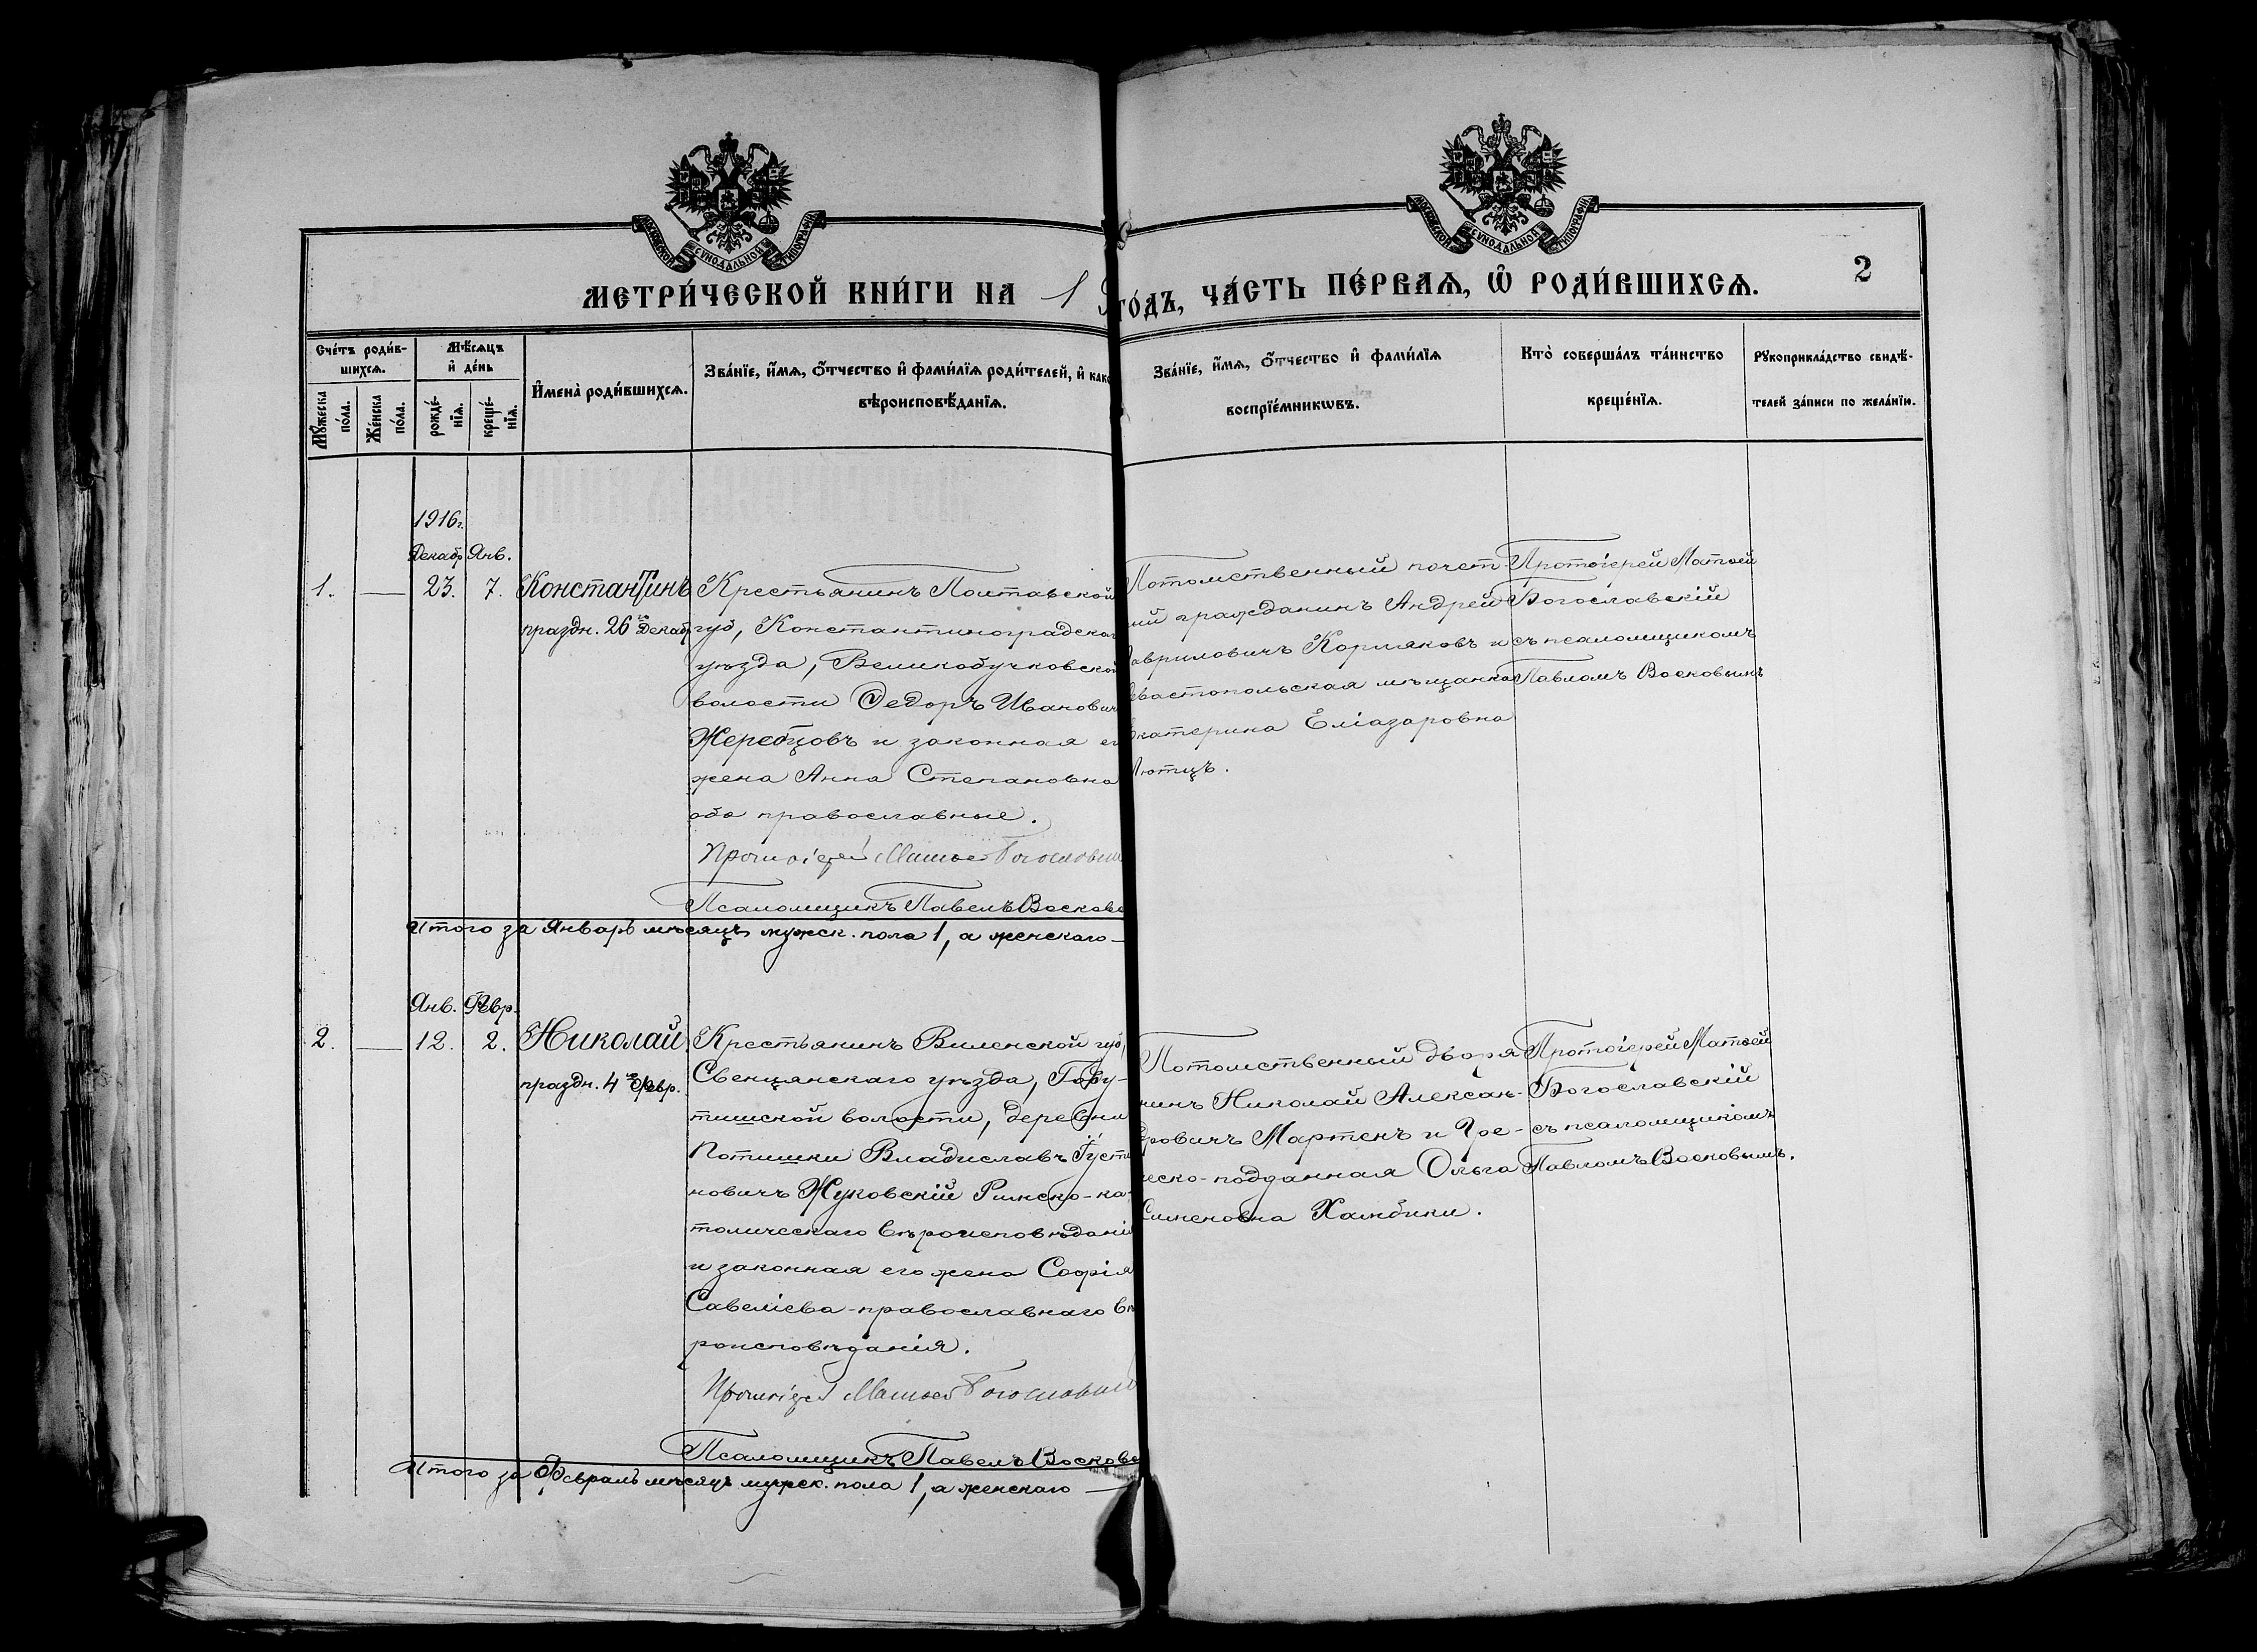 МОСКОВСКОЙ СѴНОДАЛЬНОЙ ТИПОГРАФІИ
МОСКОВСКОЙ СѴНОДАЛЬНОЙ ТИПОГРАФІИ
МЕТРИ́ЧЕСКОЙ КНИ́ГИ НА 1
ГО́ДЪ, ЧА́СТЬ ПЕ́РВАѦ, Ѡ҆ РОДИ́ВШИХСѦ.
2
Сче́тъ роди́в-
шихсѧ.
Мꙋ́жеска
по́ла.
Же́нска
по́ла.
Мѣ́сѧцъ
и҆ де́нь
рожде́-
нїѧ.
креще́-
нїѧ.
И҆мена̀ роди́вшихсѧ.
Зва́нїе, и҆́мѧ, ѻ҆́тчество и҆ фами́лїѧ роди́телей, и҆ како
вѣроисповѣ́данїѧ.
Зва́нїе, и҆́мѧ, ѻ҆́тчество и҆ фами́лїѧ
воспрїе́мникѡвъ.
Кто̀ соверша́лъ та́инство
креще́нїѧ.
Рꙋкоприкла́дство свидѣ́-
телей за́писи по жела́нїю.
1916г.
Декабр Янв.
1. — 23. 7. Константинъ
праздн. 26го Декабр
Крестьянинъ Полтавской
губ, Константиноградскаго
уѣзда, Великобучковской
волости Ѳедоръ Иванович
Жеребцовъ и законная ег
жена Анна Степановна
оба православные.
Протоіерей Матѳей Богословскій
Псаломщикъ Павелъ Восково
Потомственный почет
ный гражданинъ Андрей
Гавриловичъ Кормяковъ и
Севастопольская мѣщанка
Екатерина Еліазаровна
Лютцъ.
Протоіерей Матѳей
Богославскій
съ псаломщикомъ
Павломъ Восковымъ
Итого за Январь мѣсяцъ мужск. пола 1, а женскаго —
Янв. Февр.
2. — 12. 2. Николай
праздн. 4го Февр.
Крестьянинъ Виленской губ,
Свенцянскаго уѣзда, Году-
тишской волости, деревни
Потишки Владиславъ Густи
новичъ Жуковскій Римско-ка-
толическаго вѣроисповѣданія
и законная его жена Софія
Савеліева - православнаго вѣ
роисповѣданія.
Протоіерей Матѳей Богословскій
Псаломщикъ Павелъ Восково
Потомственный дворя
нинъ Николай Алексан-
дровичъ Мартенъ и Гре-
ческо-подданная Ольга
Сименовна Хамбики.
Протоіерей Матѳей
Богославскій
съ псаломщикомъ
Павломъ Восковымъ.
Итого за Февраль мѣсяцъ мужск. пола 1, а женскаго —